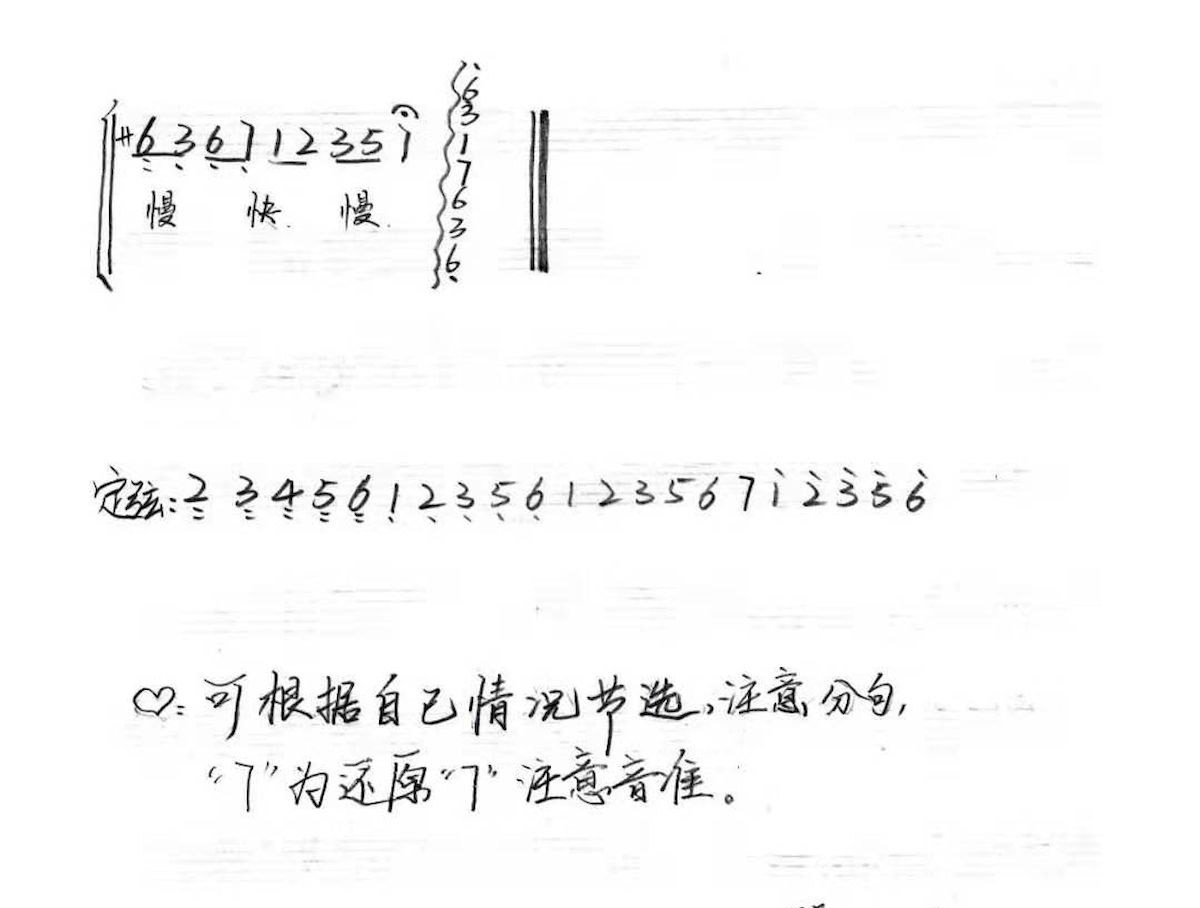 サ6 3 6 7 1 2 3 5 i
慢 快. 慢.
6
3
1
7
6
3
6
定弦: 2 3 4 5 6 1 2 3 5 6 1 2 3 5 6 7 i 2 3 5 6
♡: 可根据自己情况节选,注意分句,
“7”为还原“7”注意音准。